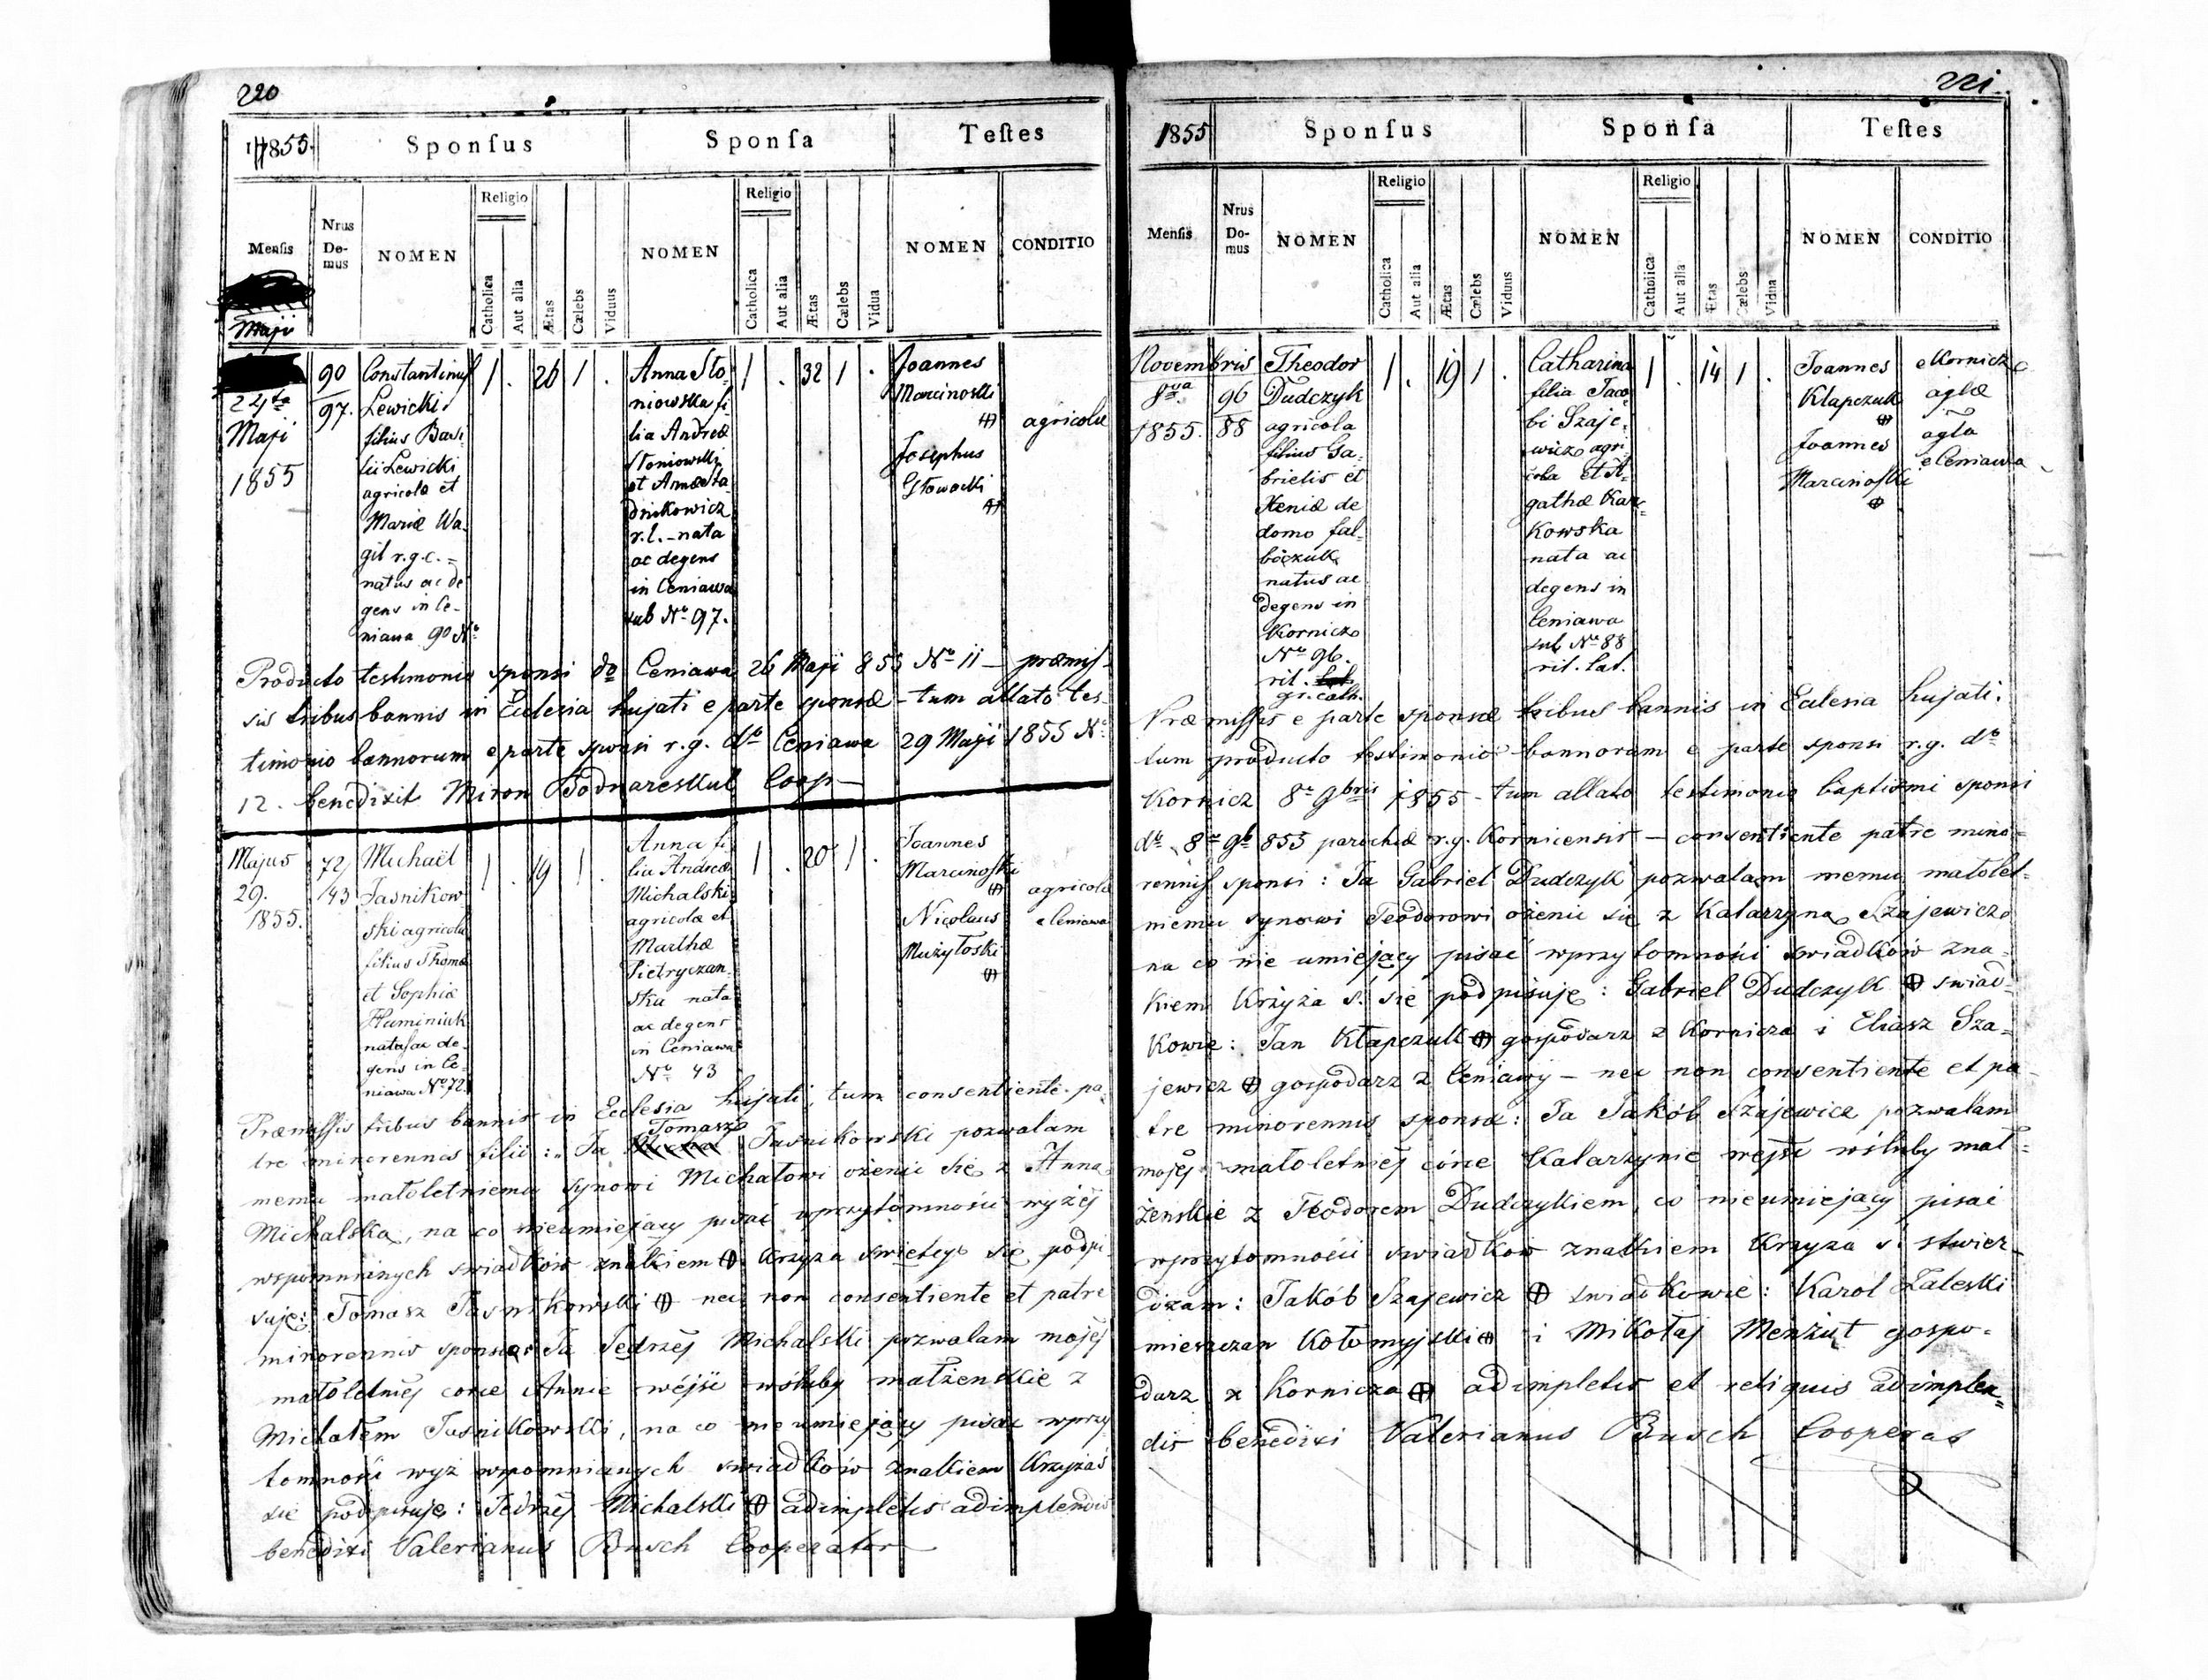 220
1855.
Sponſus
Sponſa
Teſtes
Menſis
Nrus Domus
NOMEN
Religio
Catholica
Aut alia
Ætas
Cælebs
Viduus
NOMEN
Religio
Catholica
Aut alia
Ætas
Cælebs
Vidua
NOMEN
CONDITIO
Maji
24ta
Maji
1855
90
97.
Constantinus
Lewicki
filius Basi
lii Lewicki
agricolæ et
Mariæ Wa-
gil r.g.c. =
natus ac de
gens in Ce-
niawa 90 No
1 . 26 1 .
Anna Sto-
niowska fi-
lia Andreæ
Stoniowski
et Annæ Sta-
dnikowicz
r.l. - nata
ac degens
in Ceniawa
sub No 97.
1 . 32 1 .
Joannes
Marcinoski
Josephus
Głowacki
agricolæ
Producto testimonio sponsi do Ceniawa 26 Maji 855 No 11 - præmis-
sis tribus bannis in Ecclesia hujati e parte sponsæ - tum allato tes-
timonio bannorum e parte sponsi r.g. do Ceniawa 29 Maji 1855 No
12. benedixit Miron Bodnareskul Coop
Majus
29.
1855.
72/
43
Michaël
Jasnikow-
ski agricola
filius Thomæ
et Sophiæ
Huminiuk
natus ac de-
gens in Ce-
niawa No 72.
1 . 19 1 .
Anna fi
lia Andreæ
Michalski
agricolæ et
Marthæ
Pietryczan-
ska nata
ac degens
in Ceniawa
No 43
1 . 20 1 .
Joannes
Marcinoski
Nicolaus
Mużyłoski
agricolæ
e Ceniawa
Præmissis tribus bannis in Ecclesia hujati, tum consentiente pa-
tre minorennis filii : Ja Tomasz Jasnikowski pozwalam
memu małoletniemu synowi Michałowi ożenić się z Anną
Michalską, na co nieumiejący pisać w przytomności wyżéj
wspomnianych swiadków znakiem Krzyża swiętego się podpi-
suje: Tomasz Jasnikowski nec non consentiente et patre
minorennis sponsæ: Ja Jędrzéj Michalski pozwalam mojéj
małoletniéj córce Annie wéjść w śluby małżenskie z
Michałem Jasnikowski, na co nieumiejący pisać w przy
tomności wyż wpomnianych swiadków znakiem Krzyża ś
się podpisuje: Jędrzéj Michalski adimpletis adimplendis
benedixi Valerianus Busch Cooperator
221.
1855
Sponſus
Sponſa
Teſtes
Menſis
Nrus Domus
NOMEN
Religio
Catholica
Aut alia
Ætas
Cælebs
Viduus
NOMEN
Religio
Catholica
Aut alia
Ætas
Cælebs
Vidua
NOMEN
CONDITIO
Novembris
8va
1855.
96
88
Theodor
Dudczyk
agricola
filius Ga-
brielis et
Xeniæ de
domo Fal-
boczuk
natus ac
degens in
Kornicz
No 96.
rit.
gr. cath.
1 . 19 1 .
Catharina
filia Jaco-
bi Szaje-
wicz agri-
cola et A-
gathæ Kar-
kowska
nata ac
degens in
Ceniawa
sub No 88
rit. Lat.
1 . 14 1 .
Joannes
Kłapczuk
Joannes
Marcinoski
e Kornicz
aglæ
agła
e Ceniawa
Præmissis e parte sponsæ tribus bannis in Eclesia hujati.
tum producto testimonio bannorum e parte sponsi r.g. do
Kornicz 8a 9bris 1855 - tum allato testimonio baptismi sponsi
do 8a 9b 855 parochiæ r.g. Kornicensis - consentiente patre mino-
rennis sponsi : Ja Gabriel Dudczyk pozwalam memu małolet-
niemu synowi Teodorowi ożenić się z Katarzyną Szajewicz
na co nie umiejący pisać w przytomności swiadków zna-
kiem Krzyża ś. się podpisuję : Gabriel Dudczyk swiad-
kowie : Jan Kłapczuk gospodarz z Kornicza i Eliasz Sza-
jewicz gospodarz z Ceniawy - nec non consentiente et pa-
tre minorennis sponsæ: Ja Jakób Szajewicz pozwalam
mojéj małoletniéj córce Katarzynie wéjść w śluby mał-
żenskie z Teodorem Dudczykiem, co nieumiejący pisać
w przytomności swiadków znakiem Krzyża ś. stwier-
dzam : Jakób Szajewicz swiadkowie : Karol Zaleski
mieszczan Kołomyjski i Mikołaj Menżuł gospo-
darz z Kornicza adimpletis et reliquis adimplen-
dis benedixi Valerianus Busch Cooperat